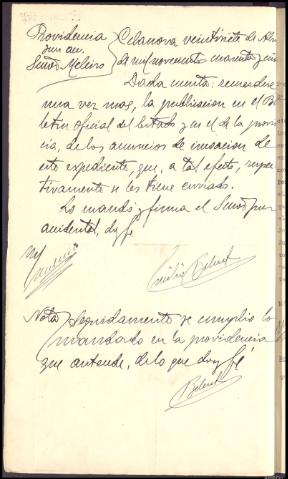 Providencia Celanova veintisiete de Abril
juez acc. de mil novecientos cuarenta y cinco
Señor Meleiro
Dada cuenta; recuérdese
una vez mas, la publicacion en el Bo
letin oficial del Estado y en el de la provin
cia, de los anuncios de incoacion de
este expediente, que, a tal efecto, respec
tivamente se les tiene enviado.
Lo mandó y firma el Señor juez
accidental, doy fé
Nota Seguidamente se cumplio lo
mandado en la providencia
que antecede, de lo que doy fé